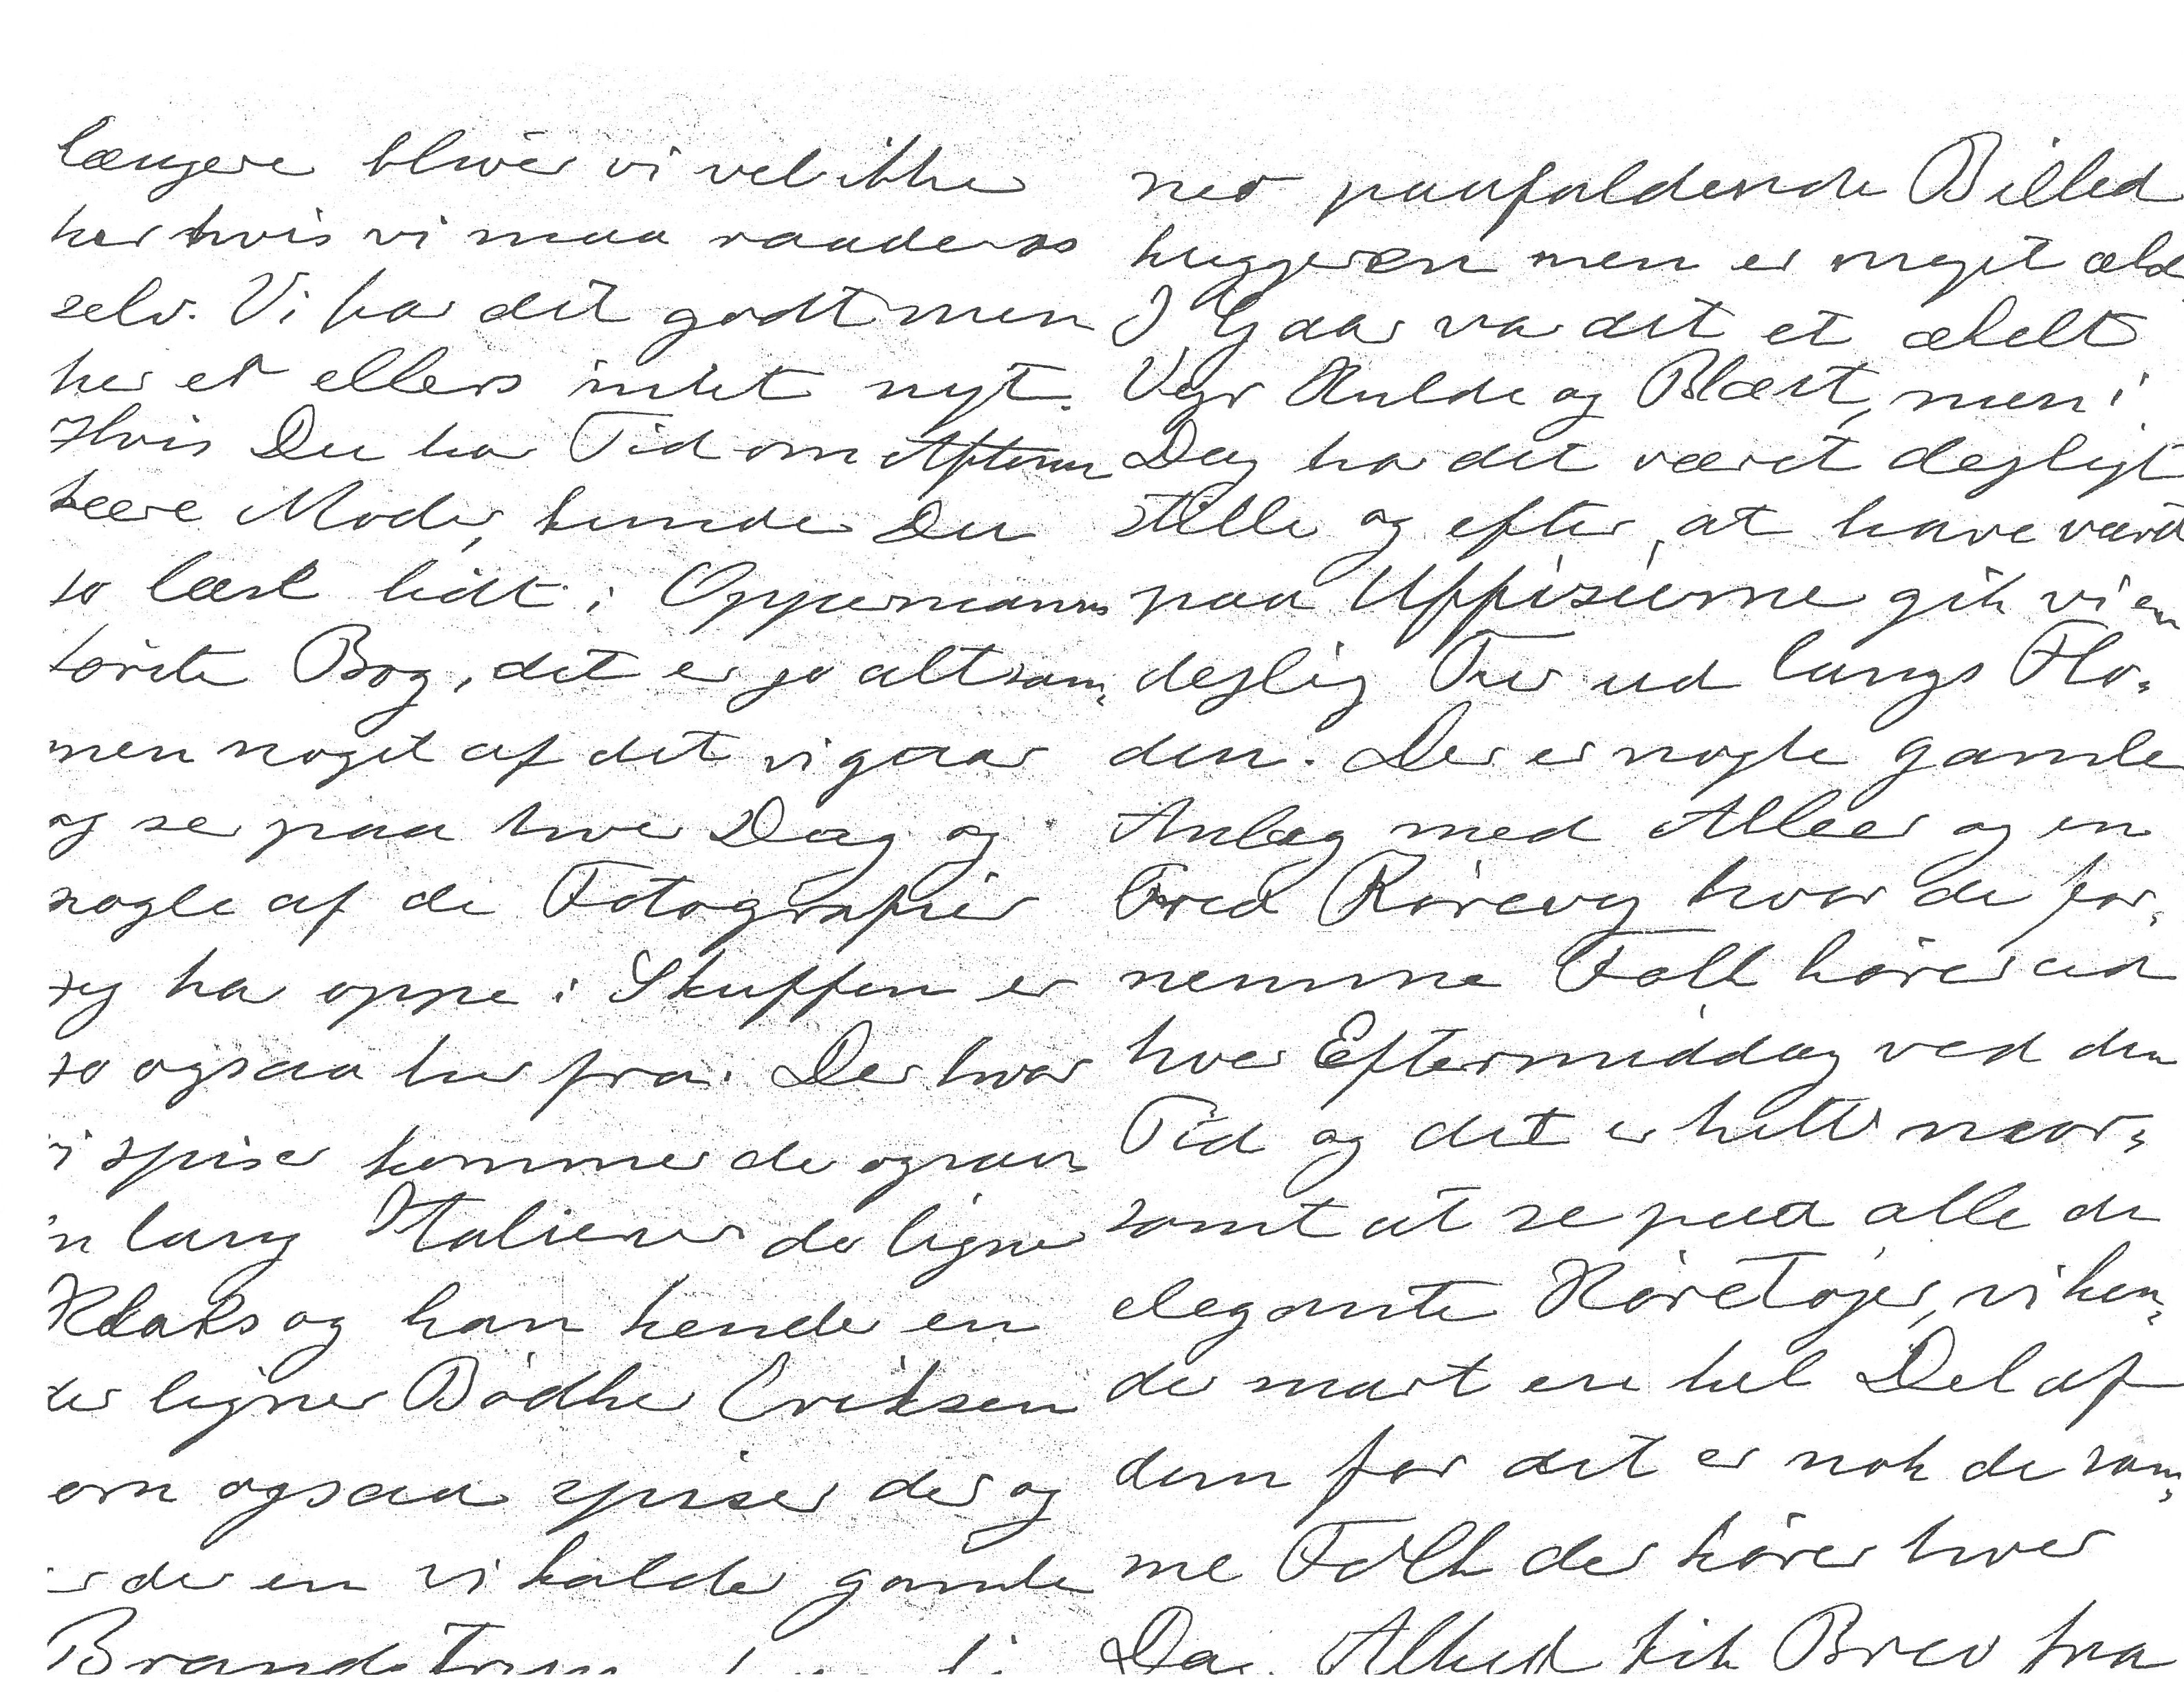 længere bliver vi vel ikke
her hvis vi maa raade os
selv. Vi har det godt men
her er ellers intet nyt.
Hvis Du har Tid om Aftenen
kære Moder, kunde Du
jo læse lidt i Oppermanns
første Bog, det er jo altsam¬
men noget af det vi gaar
og ser paa hver Dag og
nogle af de Fotografier
jeg har oppe i Skuffen er
jo ogsaa her fra. Der hvor
vi spiser kommer der ogsaa
en lang Italiener der ligner
Klaks og han kender en
der ligner Bødker Eriksen
som ogsaa spiser der og
er der en vi kalder gamle
Brandstrup
ner paafaldende Billed
huggeren men er meget æld
I Gaar var det et ækelt
Vejr Kulde og Blæst, men i
Dag har det været dejligt
stille og efter at have været
paa Uffizierne gik vi en
dejlig Tur ud langs Flo¬
den. Der er nogle gamle
Anlæg med Alleer og en
bred Körevej hvor de for¬
nemme Folk körer ud
hver Eftermiddag ved den
Tid og det er helt mor¬
somt at se paa alle de
elegante Köretøjer, vi ken¬
der snart en hel Del af
dem for det er nok de sam¬
me Folk der körer hver
Dag. Alhed fik Brev fra